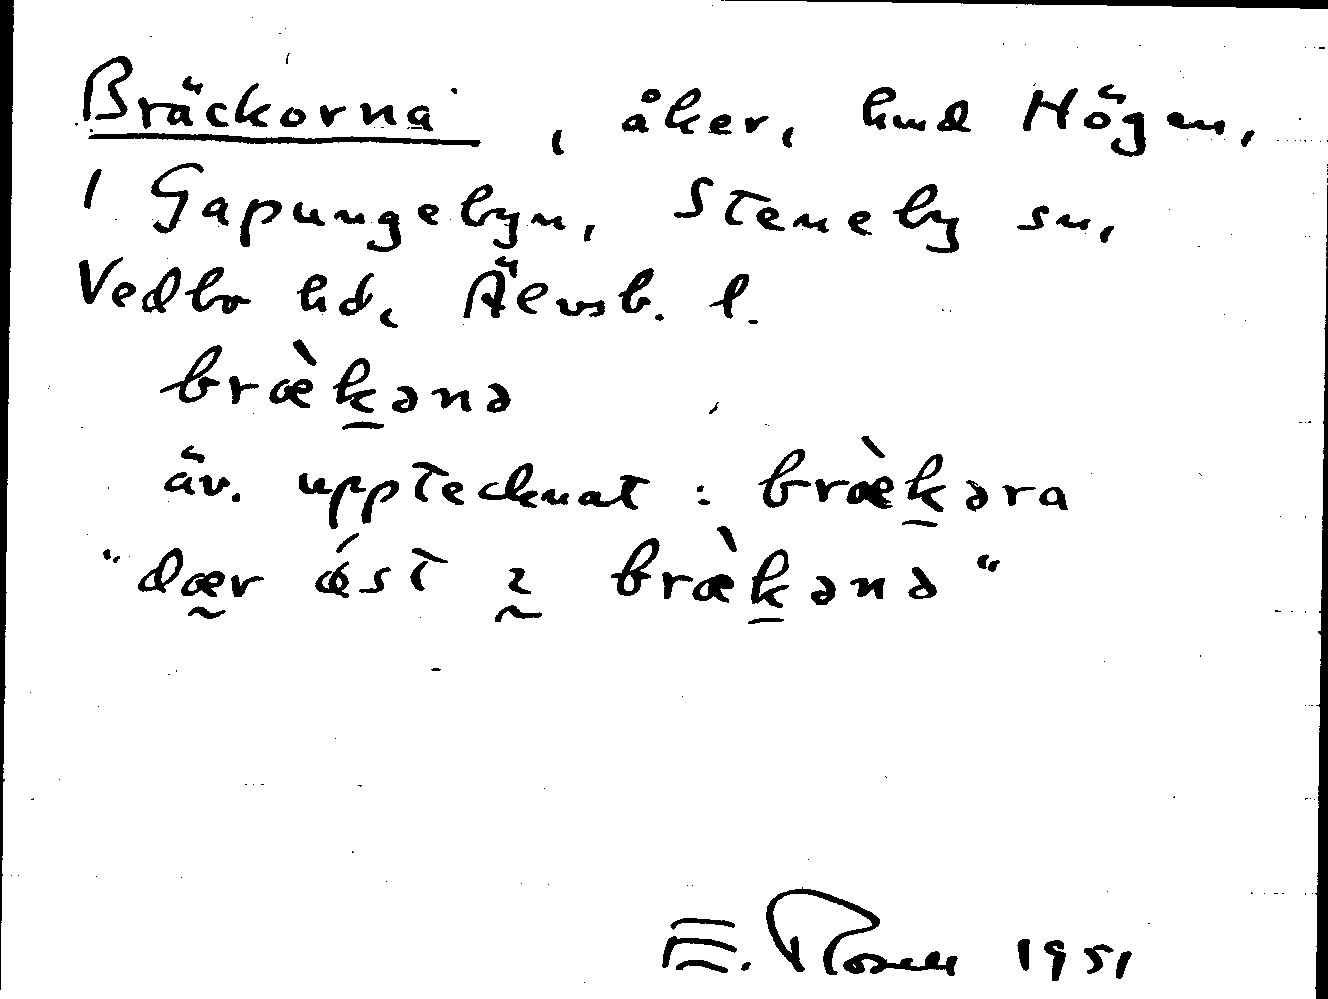 Bräckorna, åker, hmd Högen,
1 Gapungebyn, Steneby sn,
Vedbo hd, Älvsb. l.
bræ̀k̠ənə
äv. upptecknat : bræ̀k̠əra
"dæ̰r ǿst ḭ bræ̀k̠ənə"
E. Rosell 1951